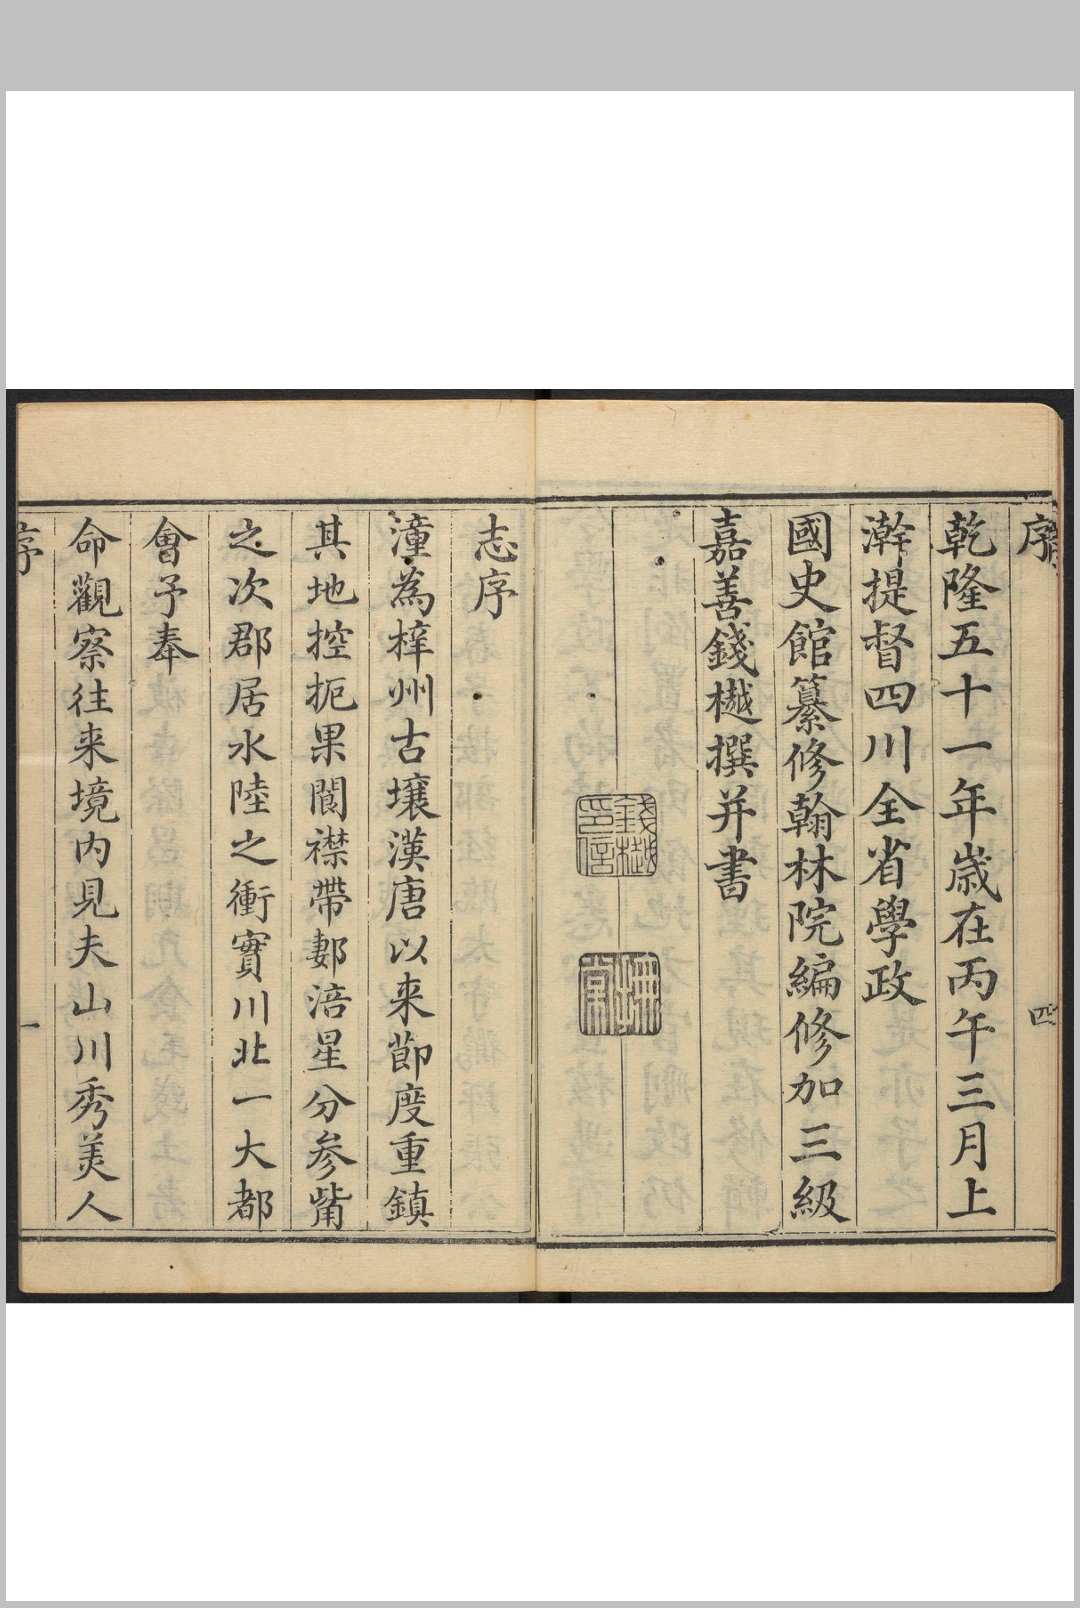 序
四
乾隆五十一年歲在丙午三月上
澣提督四川全省學政
國史館纂修翰林院編修加三級
嘉善錢樾撰并書
錢樾
印信
志序
潼為梓州古壤漢唐以来節度重鎮
其地控扼果閬襟帶郪涪星分參觜
之次郡居水陸之衝實川北一大都
會予奉
命觀察往来境内見夫山川秀美人
序
一